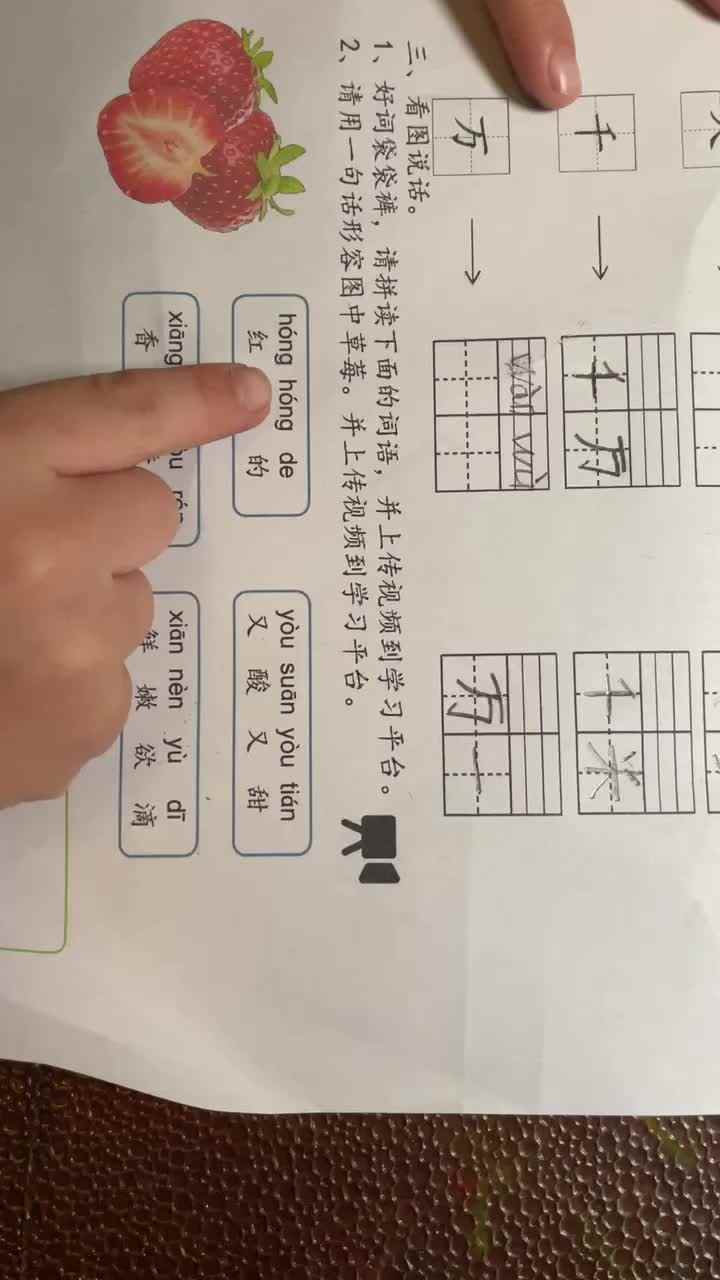 千 → 千万 千米
wàn wù
万 → 万一
三、看图说话。
1、好词袋袋裤，请拼读下面的词语，并上传视频到学习平台。
2、请用一句话形容图中草莓。并上传视频到学习平台。
hóng hóng de yòu suān yòu tián
红 的 又 酸 又 甜
xiāng xiān nèn yù dī
香 鲜 嫩 欲 滴